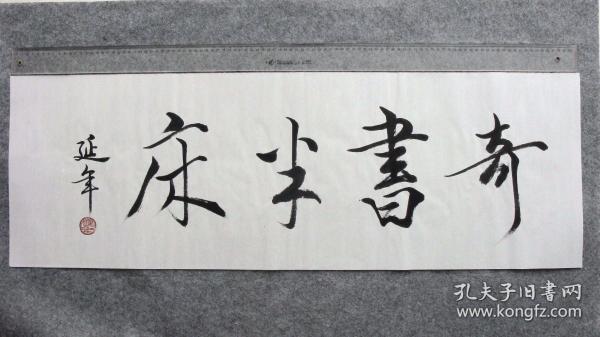 奇書半床
延年
孔夫子旧書网
www.kongfz.com